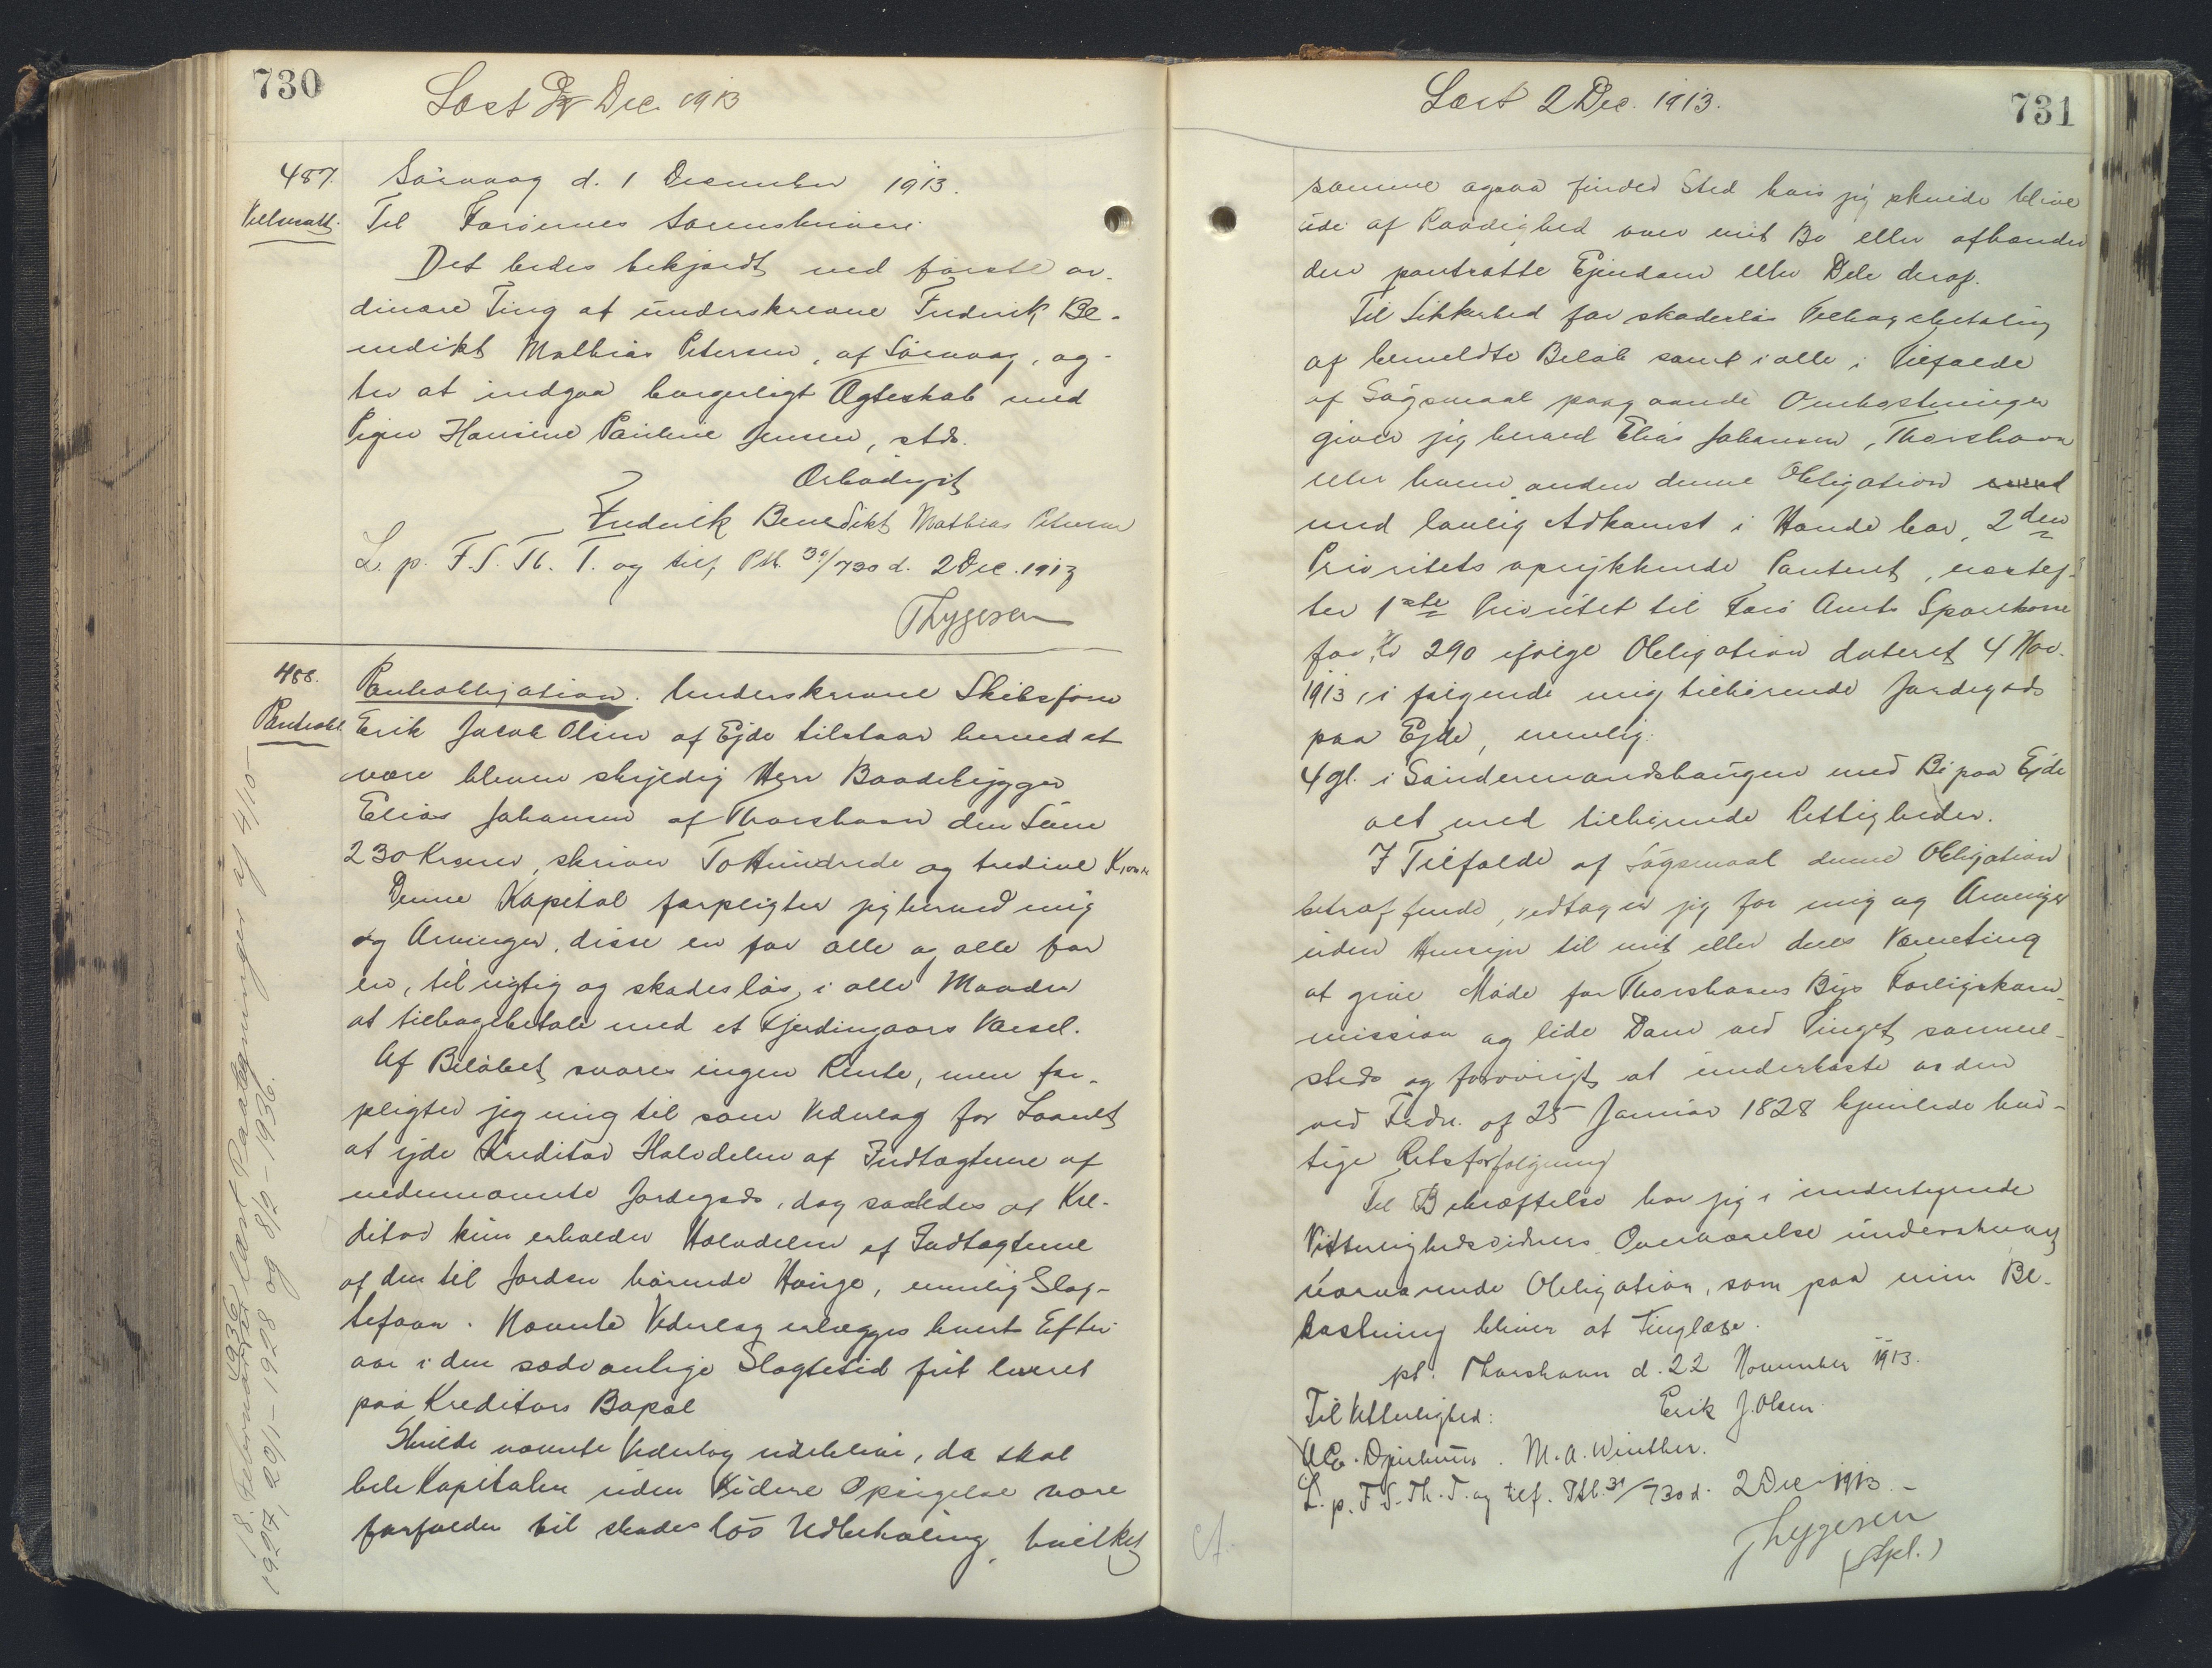 730
Læst 2 Dec. 1913
487.
Sörvaag d. 1 December 1913.
Til Færöernes Sorenskriveri
Det bedes bekjendt ved første or-
dinære Ting at underskrevne Frederik Be-
nedikt Mathias Petersen, af Sörvaag, ag-
ter at indgaa borgerligt Ægteskab med
Pigen Hansine Pauline Jensen, stds.
Ærbödigst
Frederik Benedikt Mathias Petersen
L. p. F. S. Th. T. og tilf. Ptb. 30/730 d. 2 Dec. 1913
Thygesen
488.
Pantobl.
Pantobligation. Underskrevne Skibsförer
Erik Jacob Olsen af Ejde tilstaar herved at
være bleven skyldig Herr Baadebygger
Elias Johansen af Thorshavn den Sum
230 Kroner, skriver To Hundrede og tredive Kroner
Denne Kapital forpligter jeg herved mig
og Arvinger, disse en for alle og alle for
en, til rigtig og skadeslös i alle Maader
at tilbagebetale med et Fjerdingaars Varsel.
Af Belöbet svares ingen Rente, men for-
pligter jeg mig til som Vederlag for Laanet
at yde Kreditor Halvdelen af Indtægterne af
nedennævnte Jordegods, dog saaledes at Kre-
ditor kun erholder Halvdelen af Indtægterne
af den til Jorden hörende Hauge, nemlig Slag-
tefaar. Nævnte Vederlag erlægges hvert Efter-
aar i den sædvanlige Slagtetid frit leveret
paa Kreditors Bopæl
Skulde nævnte Vederlag udeblive, da skal
hele Kapitalen uden videre Opsigelse være
forfalden til skadeslös Udbetaling, hvilket
18. Februar 1936 læst Paategninger af 4/10-
1927, 20/1-1928 og 8/2-1936.
Læst 2 Dec. 1913.
731
samme ogsaa finder Sted hvis jeg skulde blive
ude af Raadighed over mit Bo eller afhænder
den pantsatte Ejendom eller Dele deraf.
Til Sikkerhed for skadeslös Tilbagebetaling
af bemeldte Belöb samt i alle i Tilfælde
af Sögsmaal paagaaende Omkostninger
giver jeg herved Elias Johansen, Thorshavn
eller hvem anden denne Obligation
med lovlig Adkomst i Hænde har, 2den
Prioritets oprykkende Panteret, næstef-
ter 1ste Prioritet til Færö Amts Sparekasse
for Kr 290 ifölge Obligation dateret 4 Nov.
1913, i fölgende mig tilhörende Jordegods
paa Ejde, nemlig:
4 gl. i Söndermandshaugen med Bö paa Ejde
alt med tilhörende Rettigheder.
I Tilfælde af Sögsmaal denne Obligation
betræffende, vedtager jeg for mig og Arvinger
uden Hensyn til mit eller deres Værneting
at give Möde for Thorshavns Bys Forligskom-
mission og lide Dom ved Tinget samme-
steds og forövrigt at underkaste os den
ved Frdn. af 25 Januar 1828 hjemlede hur-
tige Retsforfölgning
Til Bekræftelse har jeg i undertegnede
Vitterlighedsvidners Overværelse underskrevet
nærværende Obligation, som paa min Be-
kostning bliver at tinglæse.
pt. Thorshavn d. 22 November 1913.
Til Vitterlighed: Erik J. Olsen
M. A. Winther.
L. p. F. S. Th. T. og tilf. Ptb. 31/730 d. 2 Dec 1913.
Thygesen